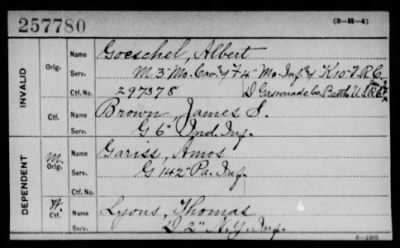 257780
(3-31-4)
INVALID
Orig.
Name Goeschel, Albert
Serv. M 3" Mo. Cav. & F 4 Mo. Inf. & K 10 V.R.C.
Ctf. No. 297378 D Gasconade Co. Battn U.S.R.C.
Ctf.
Name Brown, James S.
Serv. G 6" Ind. Inf.
DEPENDENT
M.
Orig.
Name Gariss, Amos
Serv. G 142" Pa. Inf.
Ctf. No.
W.
Ctf.
Name Lyons, Thomas
Serv. "D 2" N.Y. Inf.